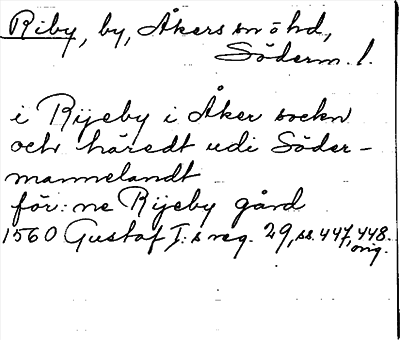 Riby, by, Åkers sn o hd,
Söderm. l.
i Rijeby i Åker sockn
och häredt udi Söder-
mannelandt
för: ne Rijeby gård
1560 Gustaf I:s reg. 29, ss. 447, 448.
orig.